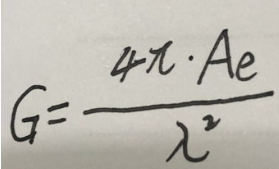 G = 4π · Ae / λ²